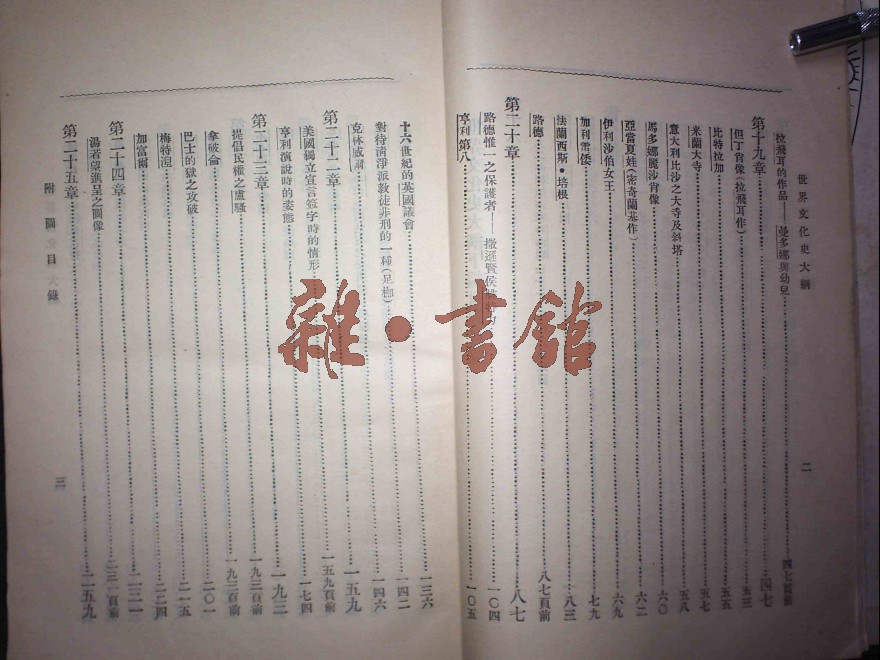 世界文化史大綱
二
拉飛耳的作品——曼多娜與幼兒 四七頁前
第十九章 四七
但丁肖像(拉飛耳作) 五三
比特拉加 五五
米蘭大寺 五七
意大利比沙之大寺及斜塔 五八
馬多娜麗沙肖像 六〇
亞當夏娃(密奇蘭基作) 六二
伊利沙伯女王 六九
加利雷倭 七九
法蘭西斯•培根 八三
路德 八七頁前
第二十章 八七
路德惟一之保護者——撒遜賢侯 一〇四
亨利第八 一〇五
十六世紀的英國議會 一三六
對待清淨派教徒非刑的一種(足枷) 一四二
克林威爾 一四六
第二十二章 一五九
美國獨立宣言簽字時的情形 一五九頁前
亨利演說時的姿態 一七四
第二十三章 一九三
提倡民權之盧騷 一九三頁前
拿破侖 二〇一
巴士的獄之攻破 二一五
梅特涅 二二四
加富爾 二三一
第二十四章
湯若望進呈之圖像
第二十五章 二五九
附圖目錄
三
雜•書館